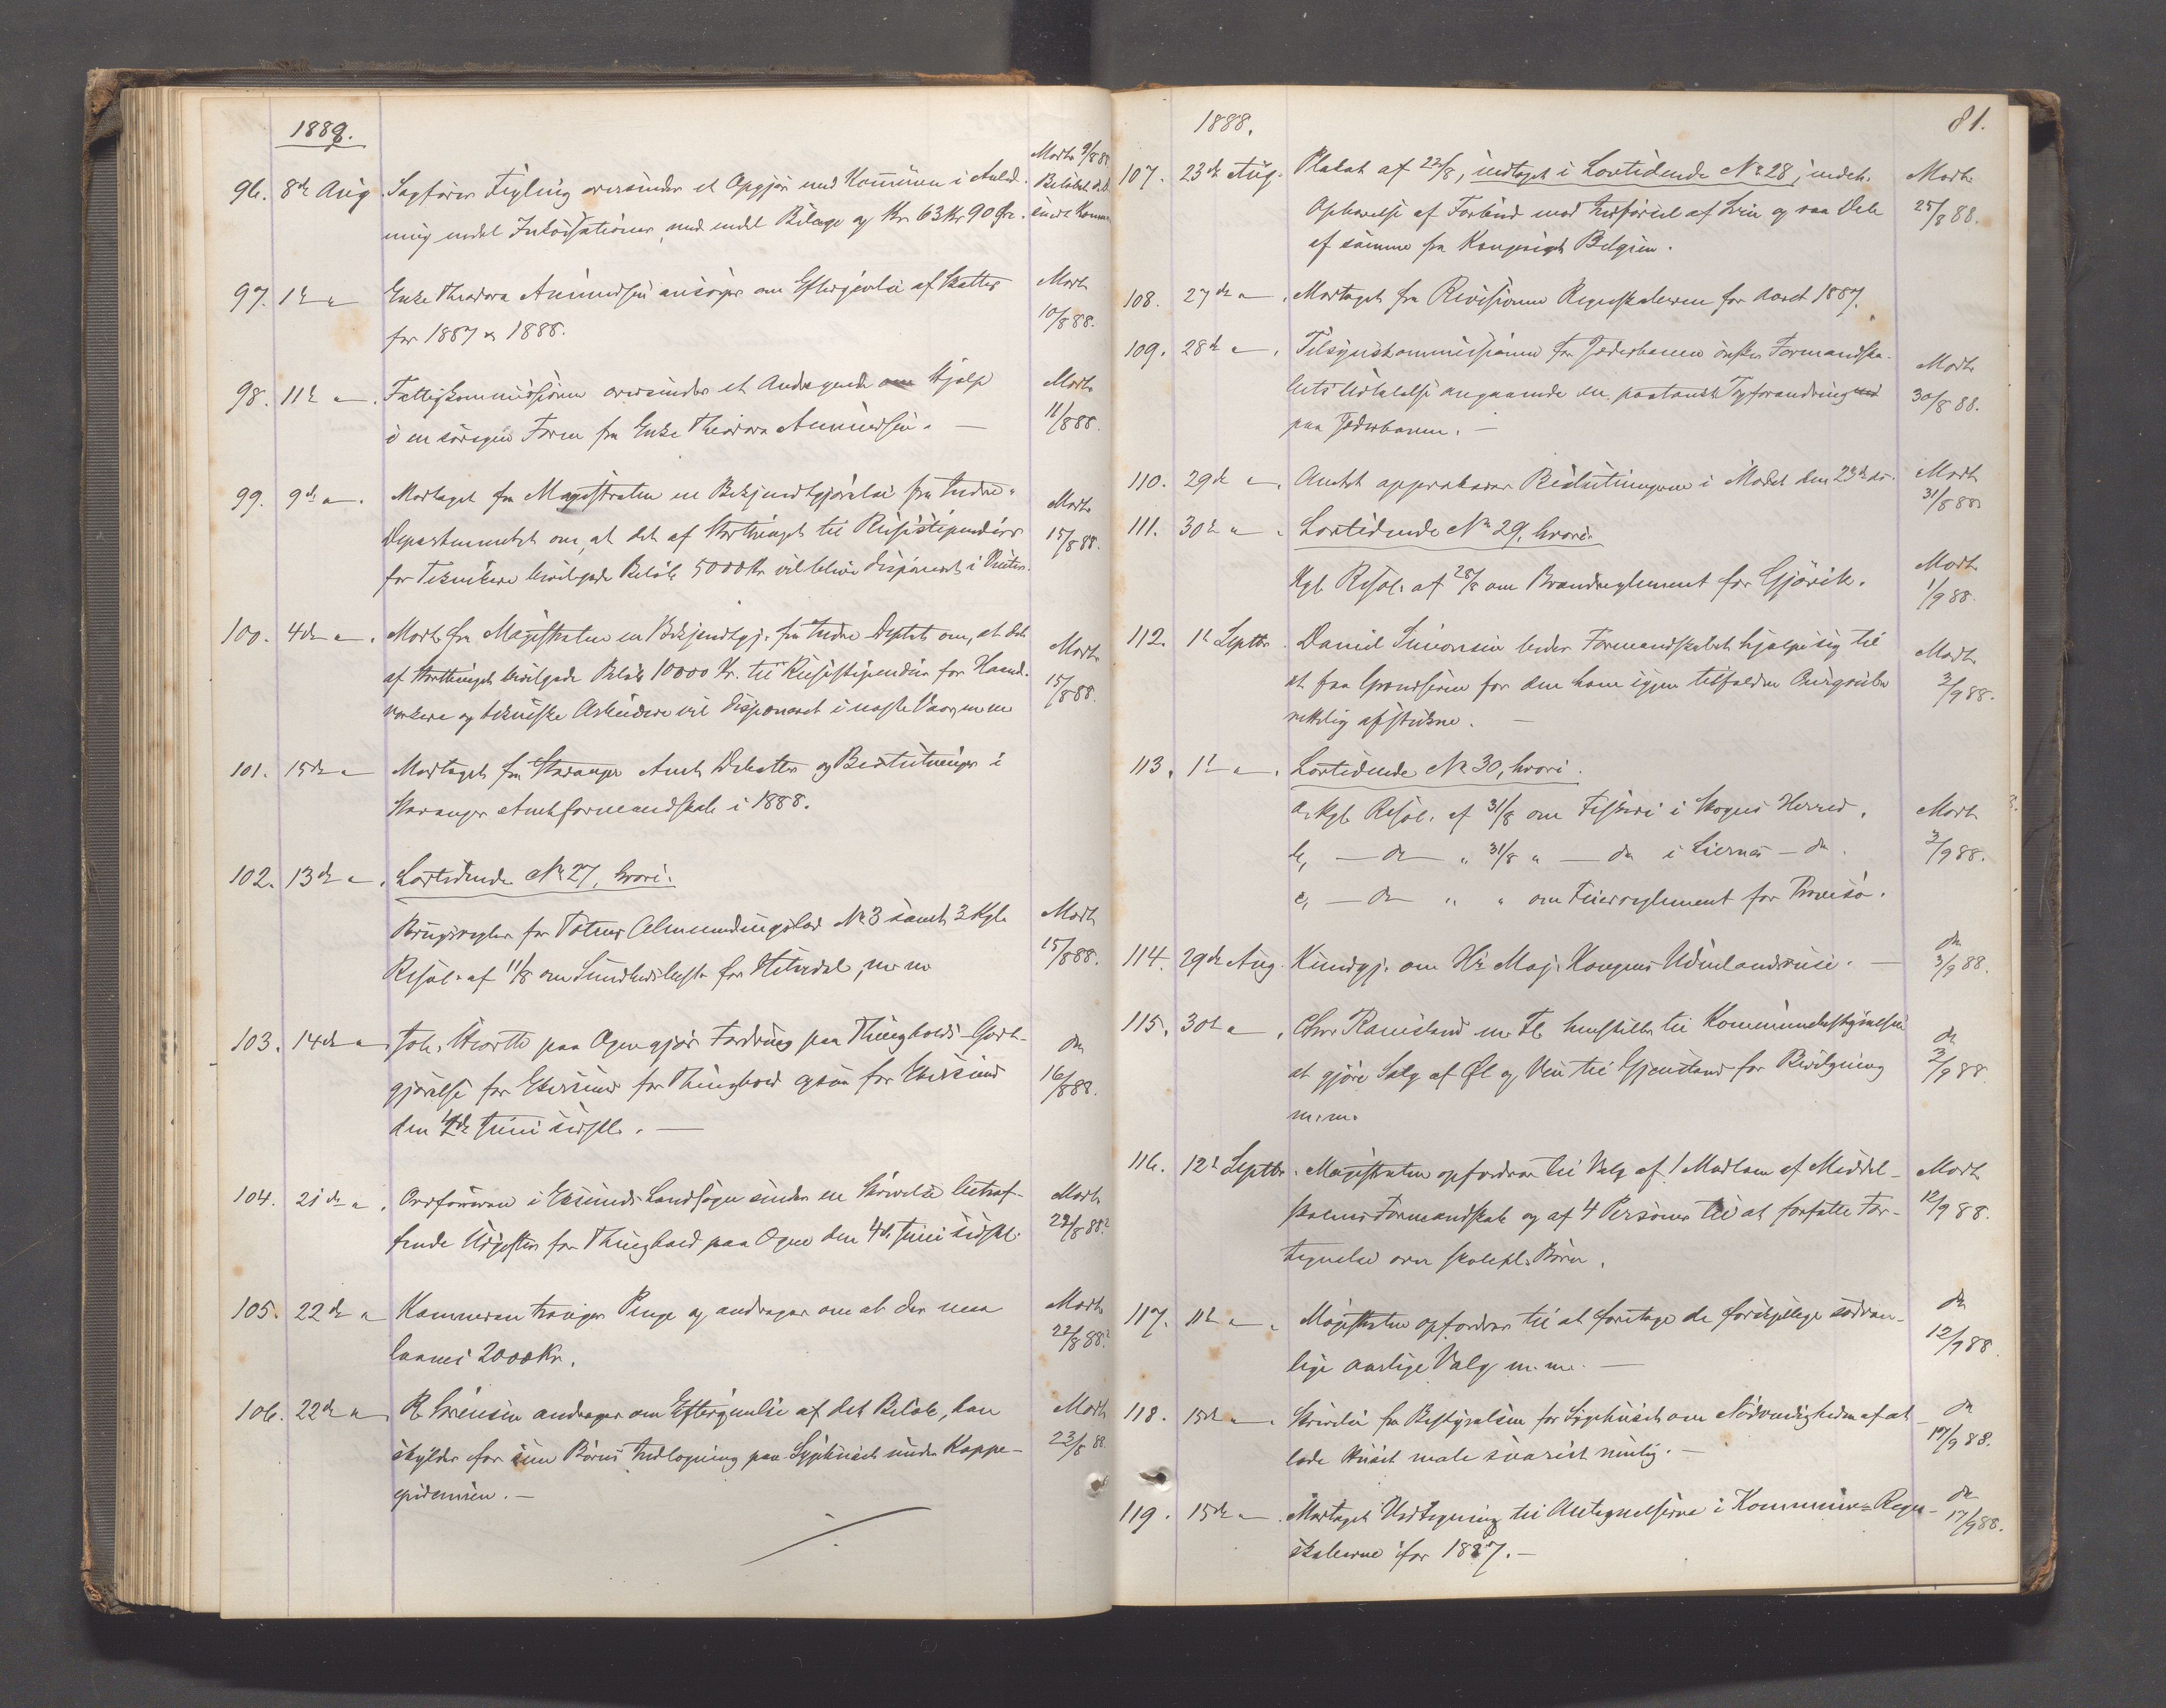 1888.
Modt. 9/8 88
96. 8de Aug. Sagfører Feyling oversender et Opgjør med Kommunen i Anled-
ning endel Inkassationer, med endel Bilage og Kr. 63 Kr. 90 Øre.
97. 1ste " Enke Theodora Amundsen ansøger om Eftergivelse af Skatter Modt.
for 1887 & 1888. 10/8 88.
98. 11te " . Fattigkommissionen oversender et Andragende om Hjælp Modt.
i en særegen Form fra Enke Theodora Amundsen. — 11/8 88.
99. 9de " . Modtaget fra Magistraten en Bekjendtgjørelse fra Indre- Modt.
Departementet om, at det af Storthinget til Reisestipendier 15/8 88.
for Teknikere bevilgede Beløb 5000 Kr. vil blive disponeret i Vinter.
100. 4de " . Modt. fra Magistraten en Bekjendtgj. fra Indre Deptet om, at det Modt.
af Storthinget bevilgede Beløb 10000 Kr. til Reisestipendier for Haand- 15/8 88.
værkere og tekniske Arbeidere vil disponeret i næste Vaar, m. m.
101. 15de " Modtaget fra Stavanger Amt Debatter og Beslutninger i
Stavanger Amtsformandskab i 1888.
102. 13de " . Lovtidende No 27, hvori:
Brugsregler for Totens Almenning No 3 samt 2 Kgl. Modt.
Resol. af 11/8 om Sundheds for m. m. 15/8 88.
103. 14de " Joh. paa Ogne gjør Fordring paa Thingholds-Godt- do
gjørelse for Ekersund for Thinghold ogsaa for Ekersund 16/8 88.
den 4de Juni sidstl. —
104. 21de " . Ordføreren i Egersunds Landsogn sender en Skrivelse betræf- Modt.
fende Udgifter for Thinghold paa Ogne den 4de Juni sidstl. 22/8 88.
105. 22de " Kæmneren trænger Penge og andrager om at der maa Modt.
laanes 2000 Kr. 22/8 88.
106. 22de " R. Sørensen andrager om Eftergivelse af det Beløb, han Modt.
skylder for sine Børns Indlægning paa Sygehuset under Koppe- 23/8 88.
epidemien. —
1888. 81.
107. 23de Aug. Plakat af 22/8, indtaget i Lovtidende No 28, indeh. Modt.
Ophævelse af Forbud mod Indførsel af Svin og raa Dele 25/8 88.
af samme fra Kongeriget Belgien.
108. 27de " . Modtaget fra Revisionen Regnskaberne for Aaret 1887.
109. 28de " . Tilsynskommissionen for Jæderbanen ønsker Formandska- Modt.
bets Udtalelse angaaende en paatænkt Togforandring 30/8 88.
paa Jæderbanen. —
110. 29de " . Amtet approberer Beslutningerne i Mødet den 23de ds. Modt.
31/8 88.
111. 30te " . Lovtidende No 29, hvori:
Kgl. Resol. af 28/8 om Brandreglement for Gjøvik. Modt.
1/9 88.
112. 1ste Septbr. Daniel Simonsen beder Formandskabet hjælpe sig til Modt.
at faa Grændserne for den ham igjen tilfaldne 3/9 88.
rettelig afstukne. —
113. 1ste " . Lovtidende No 30, hvori.
a, Kgl. Resol. af 31/8 om Fiskeri i Skogns Herred. Modt.
b, — do — " 31/8 " — do i — do. 3/9 88.
c, — do — " " om Feierreglement for Tromsø.
114. 29de Aug. Kundgj. om Hs. Maj. Kongens Udenlandsreise. — do 3/9 88.
115. 30te " . Chr. Ramsland m. Fl. henstiller til Kommunebestyrelsen do
at gjøre Salg af Øl og Vin til Gjenstand for Bevilgning 3/9 88.
m. m.
116. 12te Septbr. Magistraten opfordrer til Valg af 1 Medlem af Middel- Modt.
skolens Formandskab og af 4 Personer til at forfatte For- 12/9 88.
tegnelse over skolepl. Børn.
117. 11te " . Magistraten opfordrer til at foretage de forskjellige sædvan- do
lige aarlige Valg m. m. — 12/9 88.
118. 15de " . Skrivelse fra Bestyrelsen for Sygehuset om Nødvendigheden af at do
lade Huset male snarest mulig. — 17/9 88.
119. 15de " . Modtaget Udtegning til Antegnelserne i Kommune-Regn- do
skaberne for 1887. — 17/9 88.